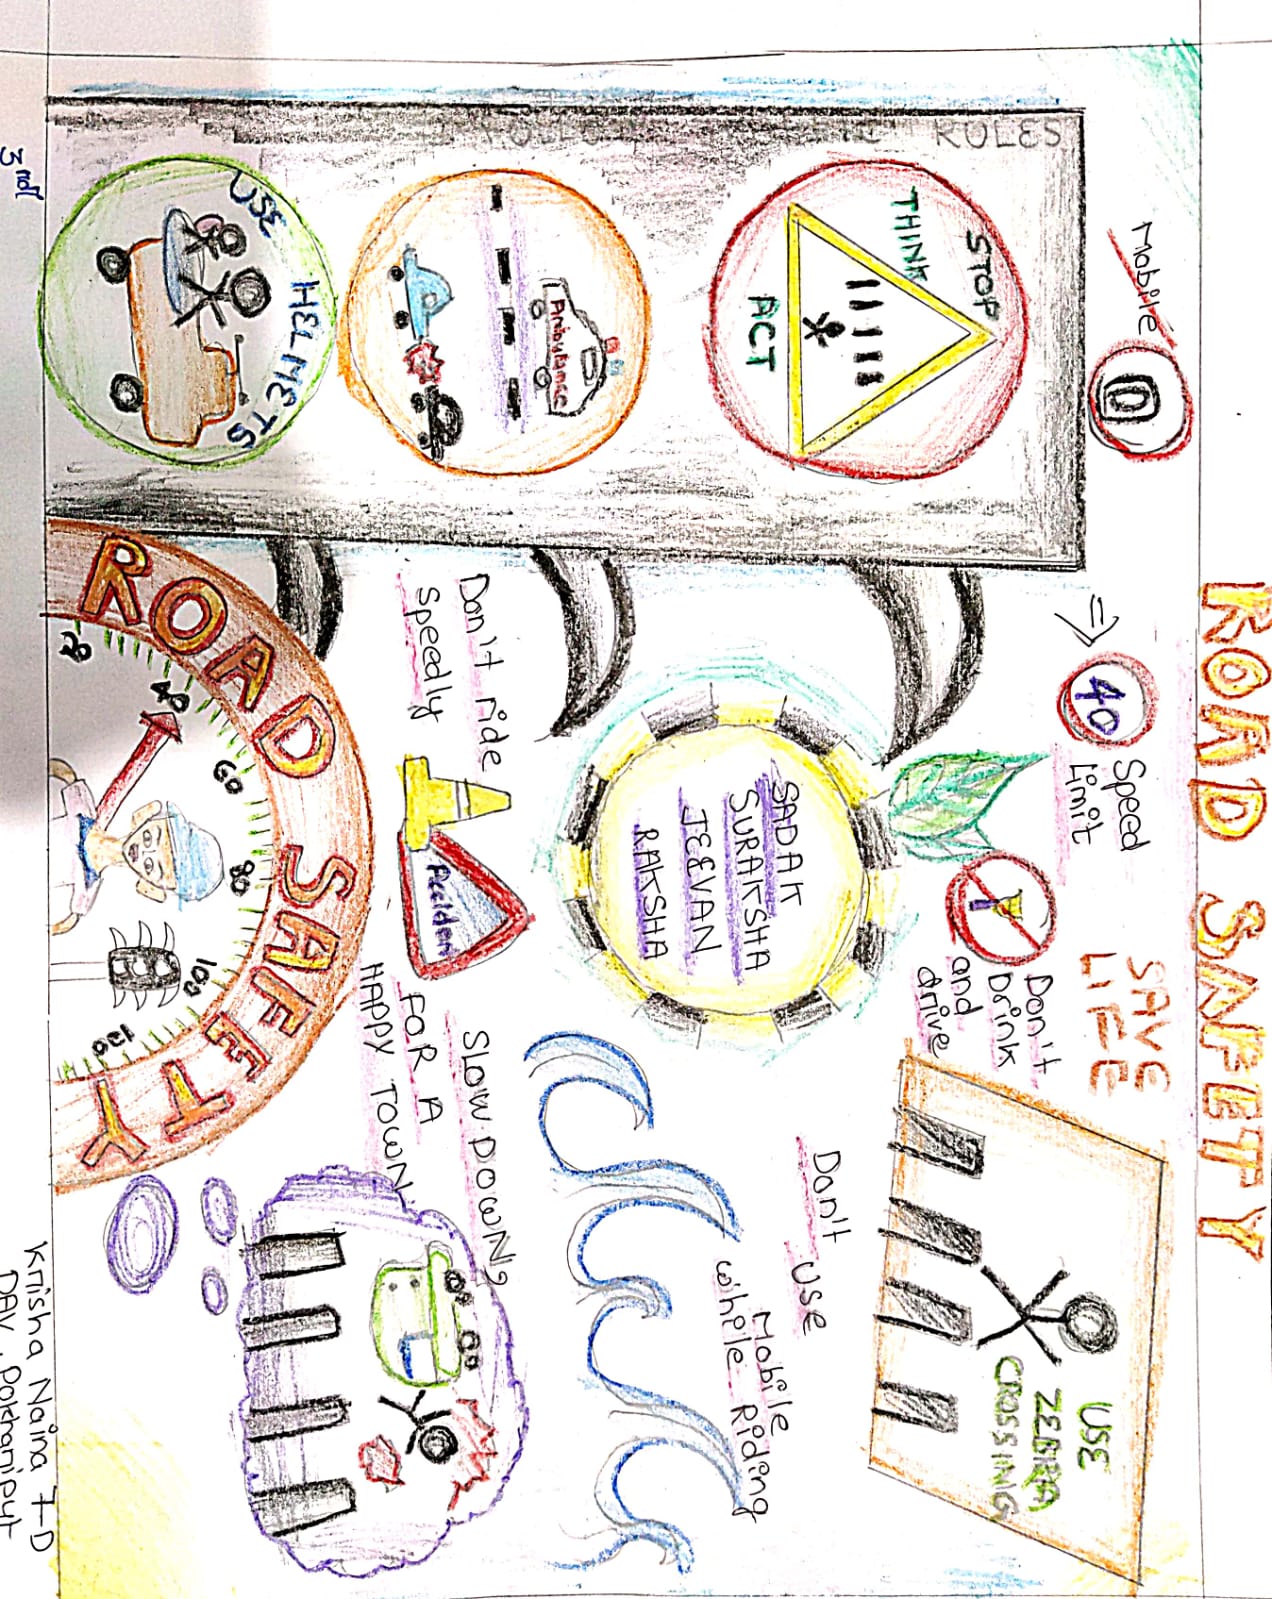 ROAD SAFETY
Mobile
40
Speed
Limit
SAVE
LIFE
RULES
STOP
THINK
ACT
Don't
Drink
and
drive
USE
ZEBRA
CROSSING
SADAK
SURAKSHA
JEEVAN
RAKSHA
Don't USE
Mobile
whele Riding
Ambulance
Don't ride
speedly
Acciden
SLOW DOWN,
FOR A
HAPPY TOWN
USE HELMETS
ROAD SAFETY
20 40 60 80 100 120
Krisha Naina 7-D